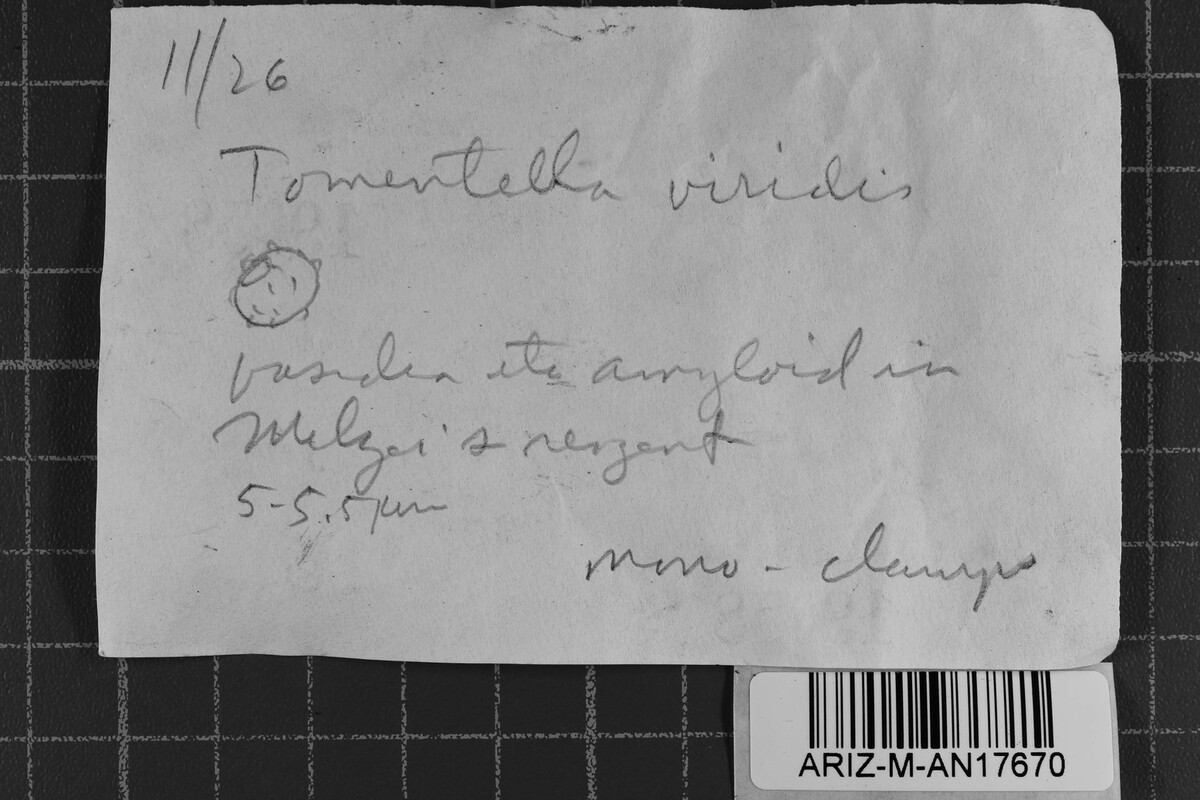 11/26
Tomentella viridis
basidia etc amyloid in
Melzer's reagent
5-5.5 µm
mono - clamps
ARIZ-M-AN17670